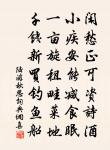 闲愁正可资诗酒
小疾安能减食眠
一亩旋租畦菜地
千钱新买钓鱼船
陆游秋思词典网集